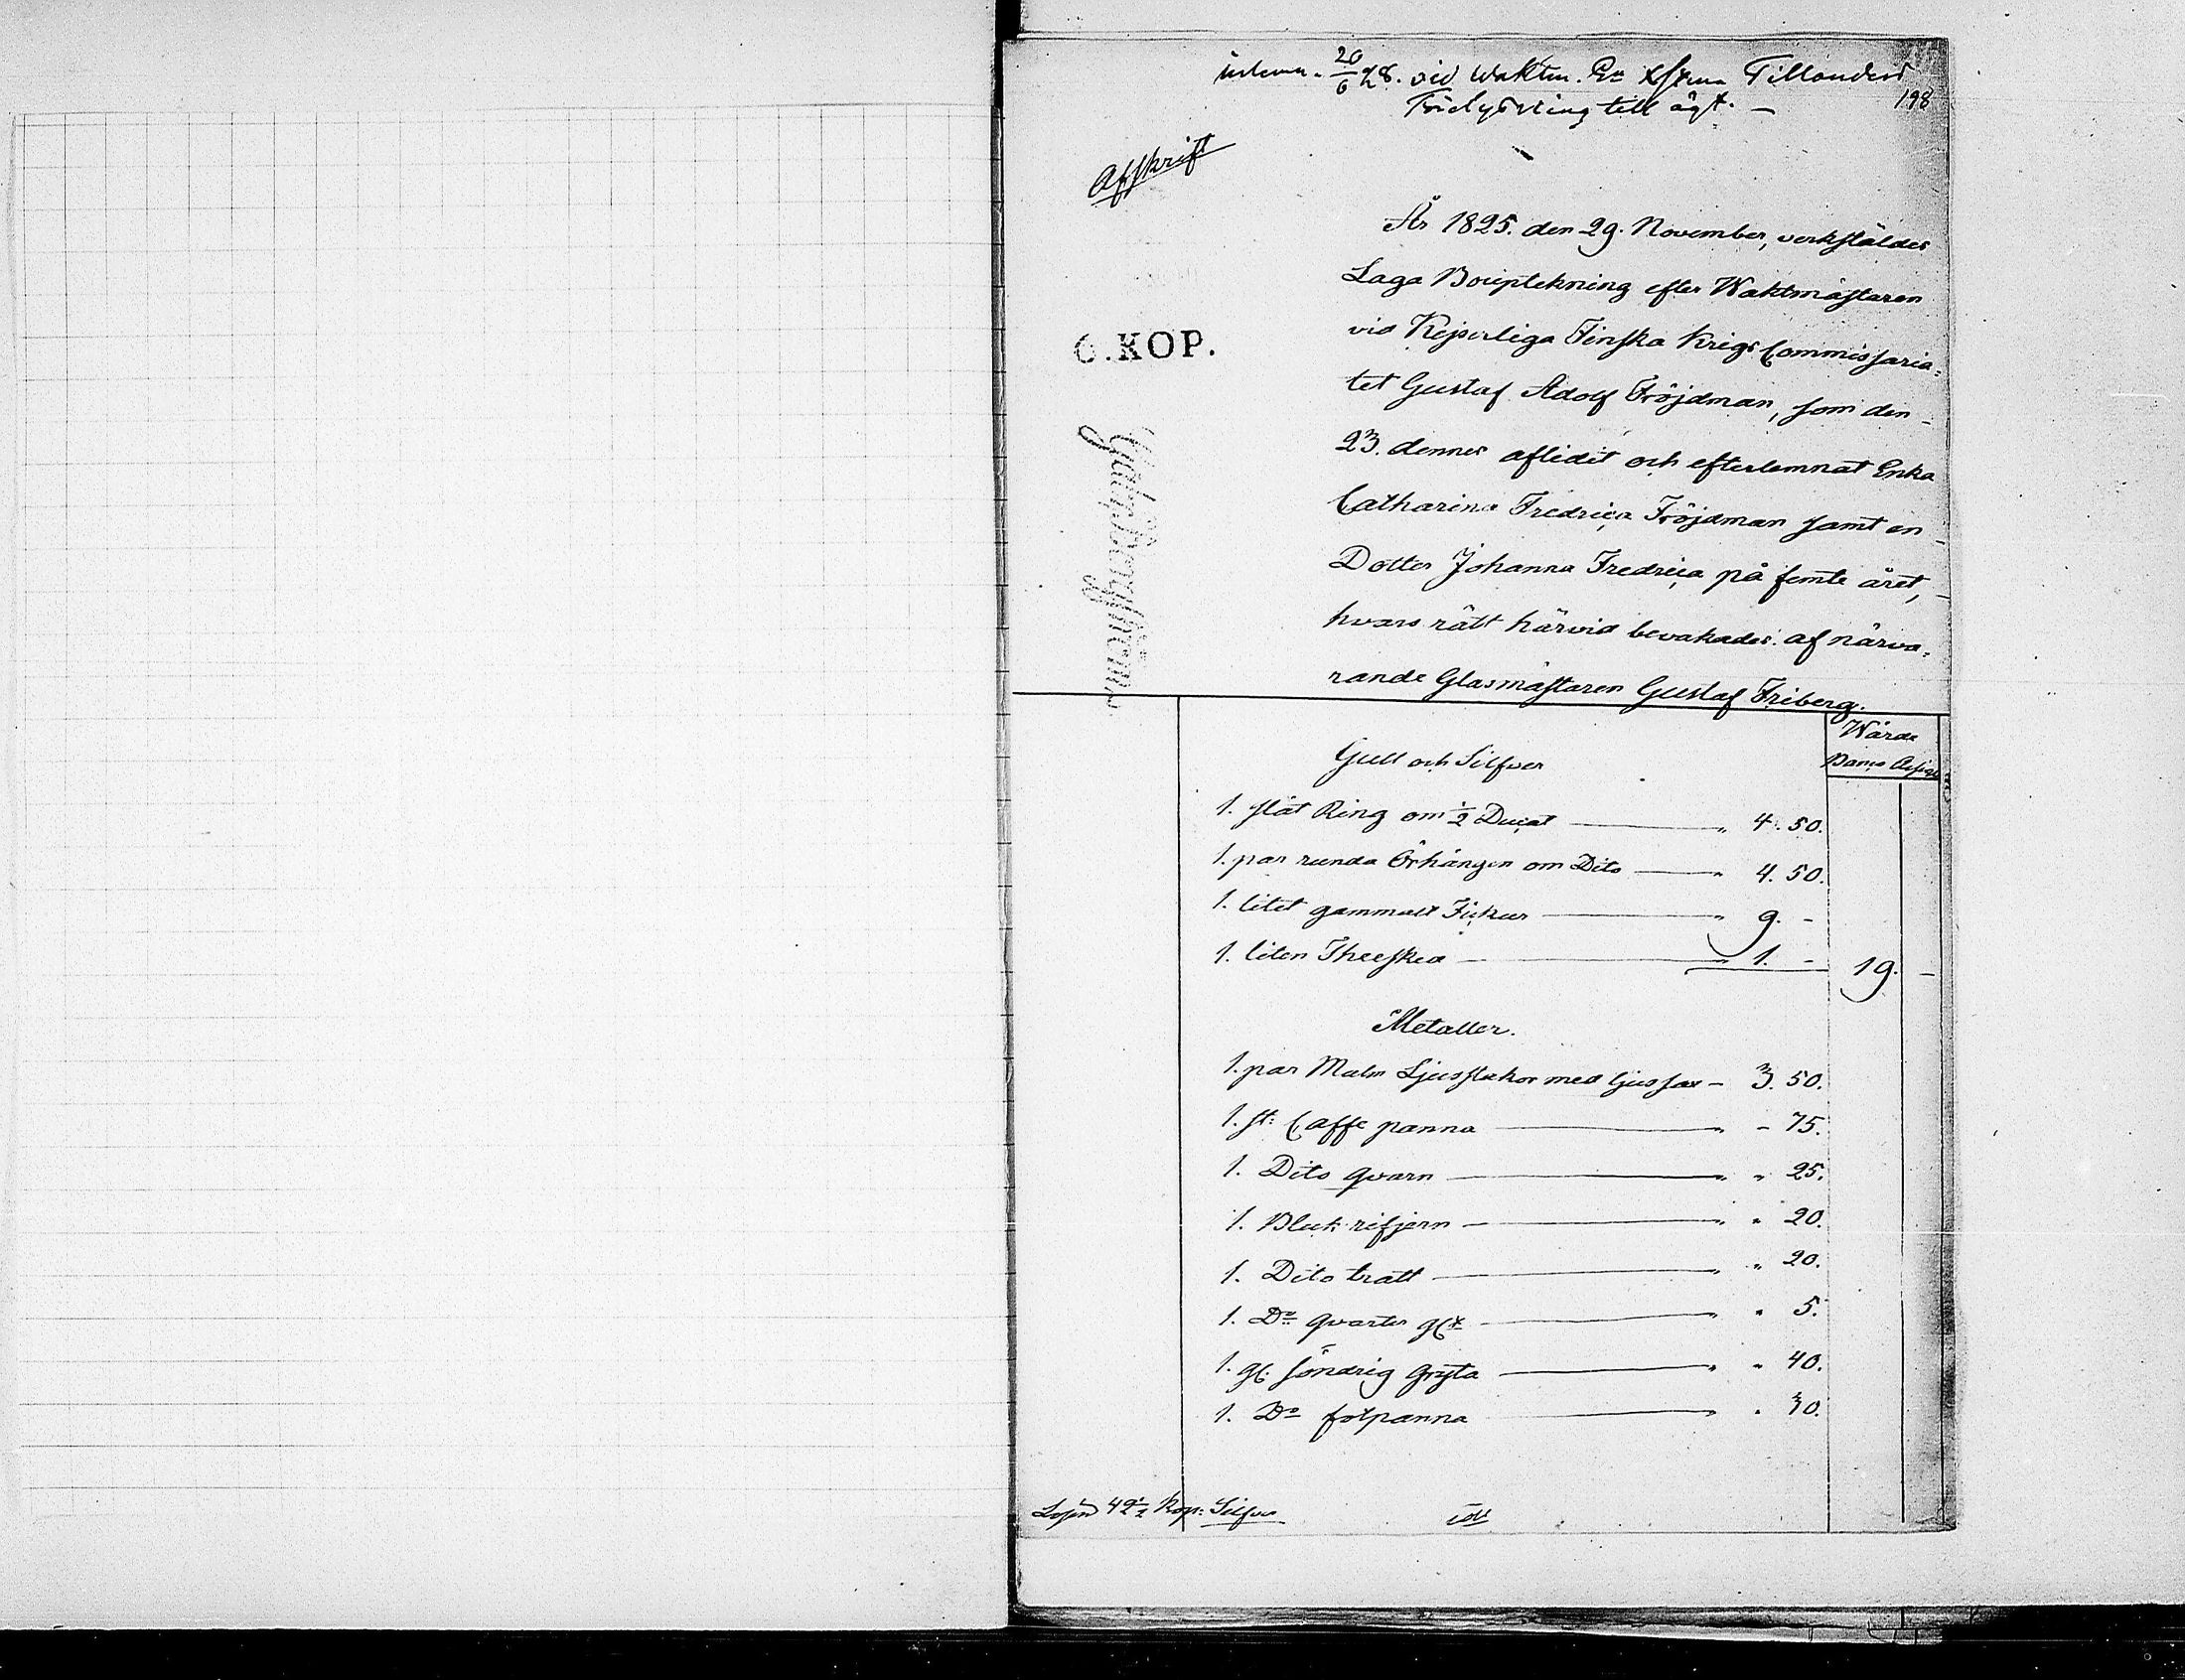 inlemn. 20/6 28. vid Waktm. En Tillanders
198
till ägt. —
Afskrift
År 1825. den 29. November, verkstäldes
Laga Bouptekning efter Waktmästaren
6. KOP.
vid Kejserliga Finska Krigs Commissaria=
tet Gustaf Adolf Fröjdman, som den
23. dennes aflidit och efterlemnat Enka
Catharina Fredrica Fröjdman samt en
Dotter Johanna Fredrica på femte året,
hvars rätt härvid bevakades af närva=
rande Glasmästaren Gustaf Friberg.
Wärde
Banco Assign
Gull och Silfver
1. slät Ring om ½ Ducat — " 4. 50.
1. par runda Örhängen om Dito — " 4. 50.
1. litet gammalt Fickur — " 9. -
1. liten Theesked — " 1. - 19. -
Metaller.
1. par Malm Ljusstakar med ljussax - 3. 50.
1. st: Caffe panna — " - 75.
1. Dito qvarn — " " 25.
1. Bleck rifjern — " " 20.
1. Dito tratt — " " 20.
1. Do qvarter glt — " " 5.
1. gl. söndrig Gryta — " " 40.
1. Do fotpanna — " " 30.
Lösen 42½ Kop: Silfver